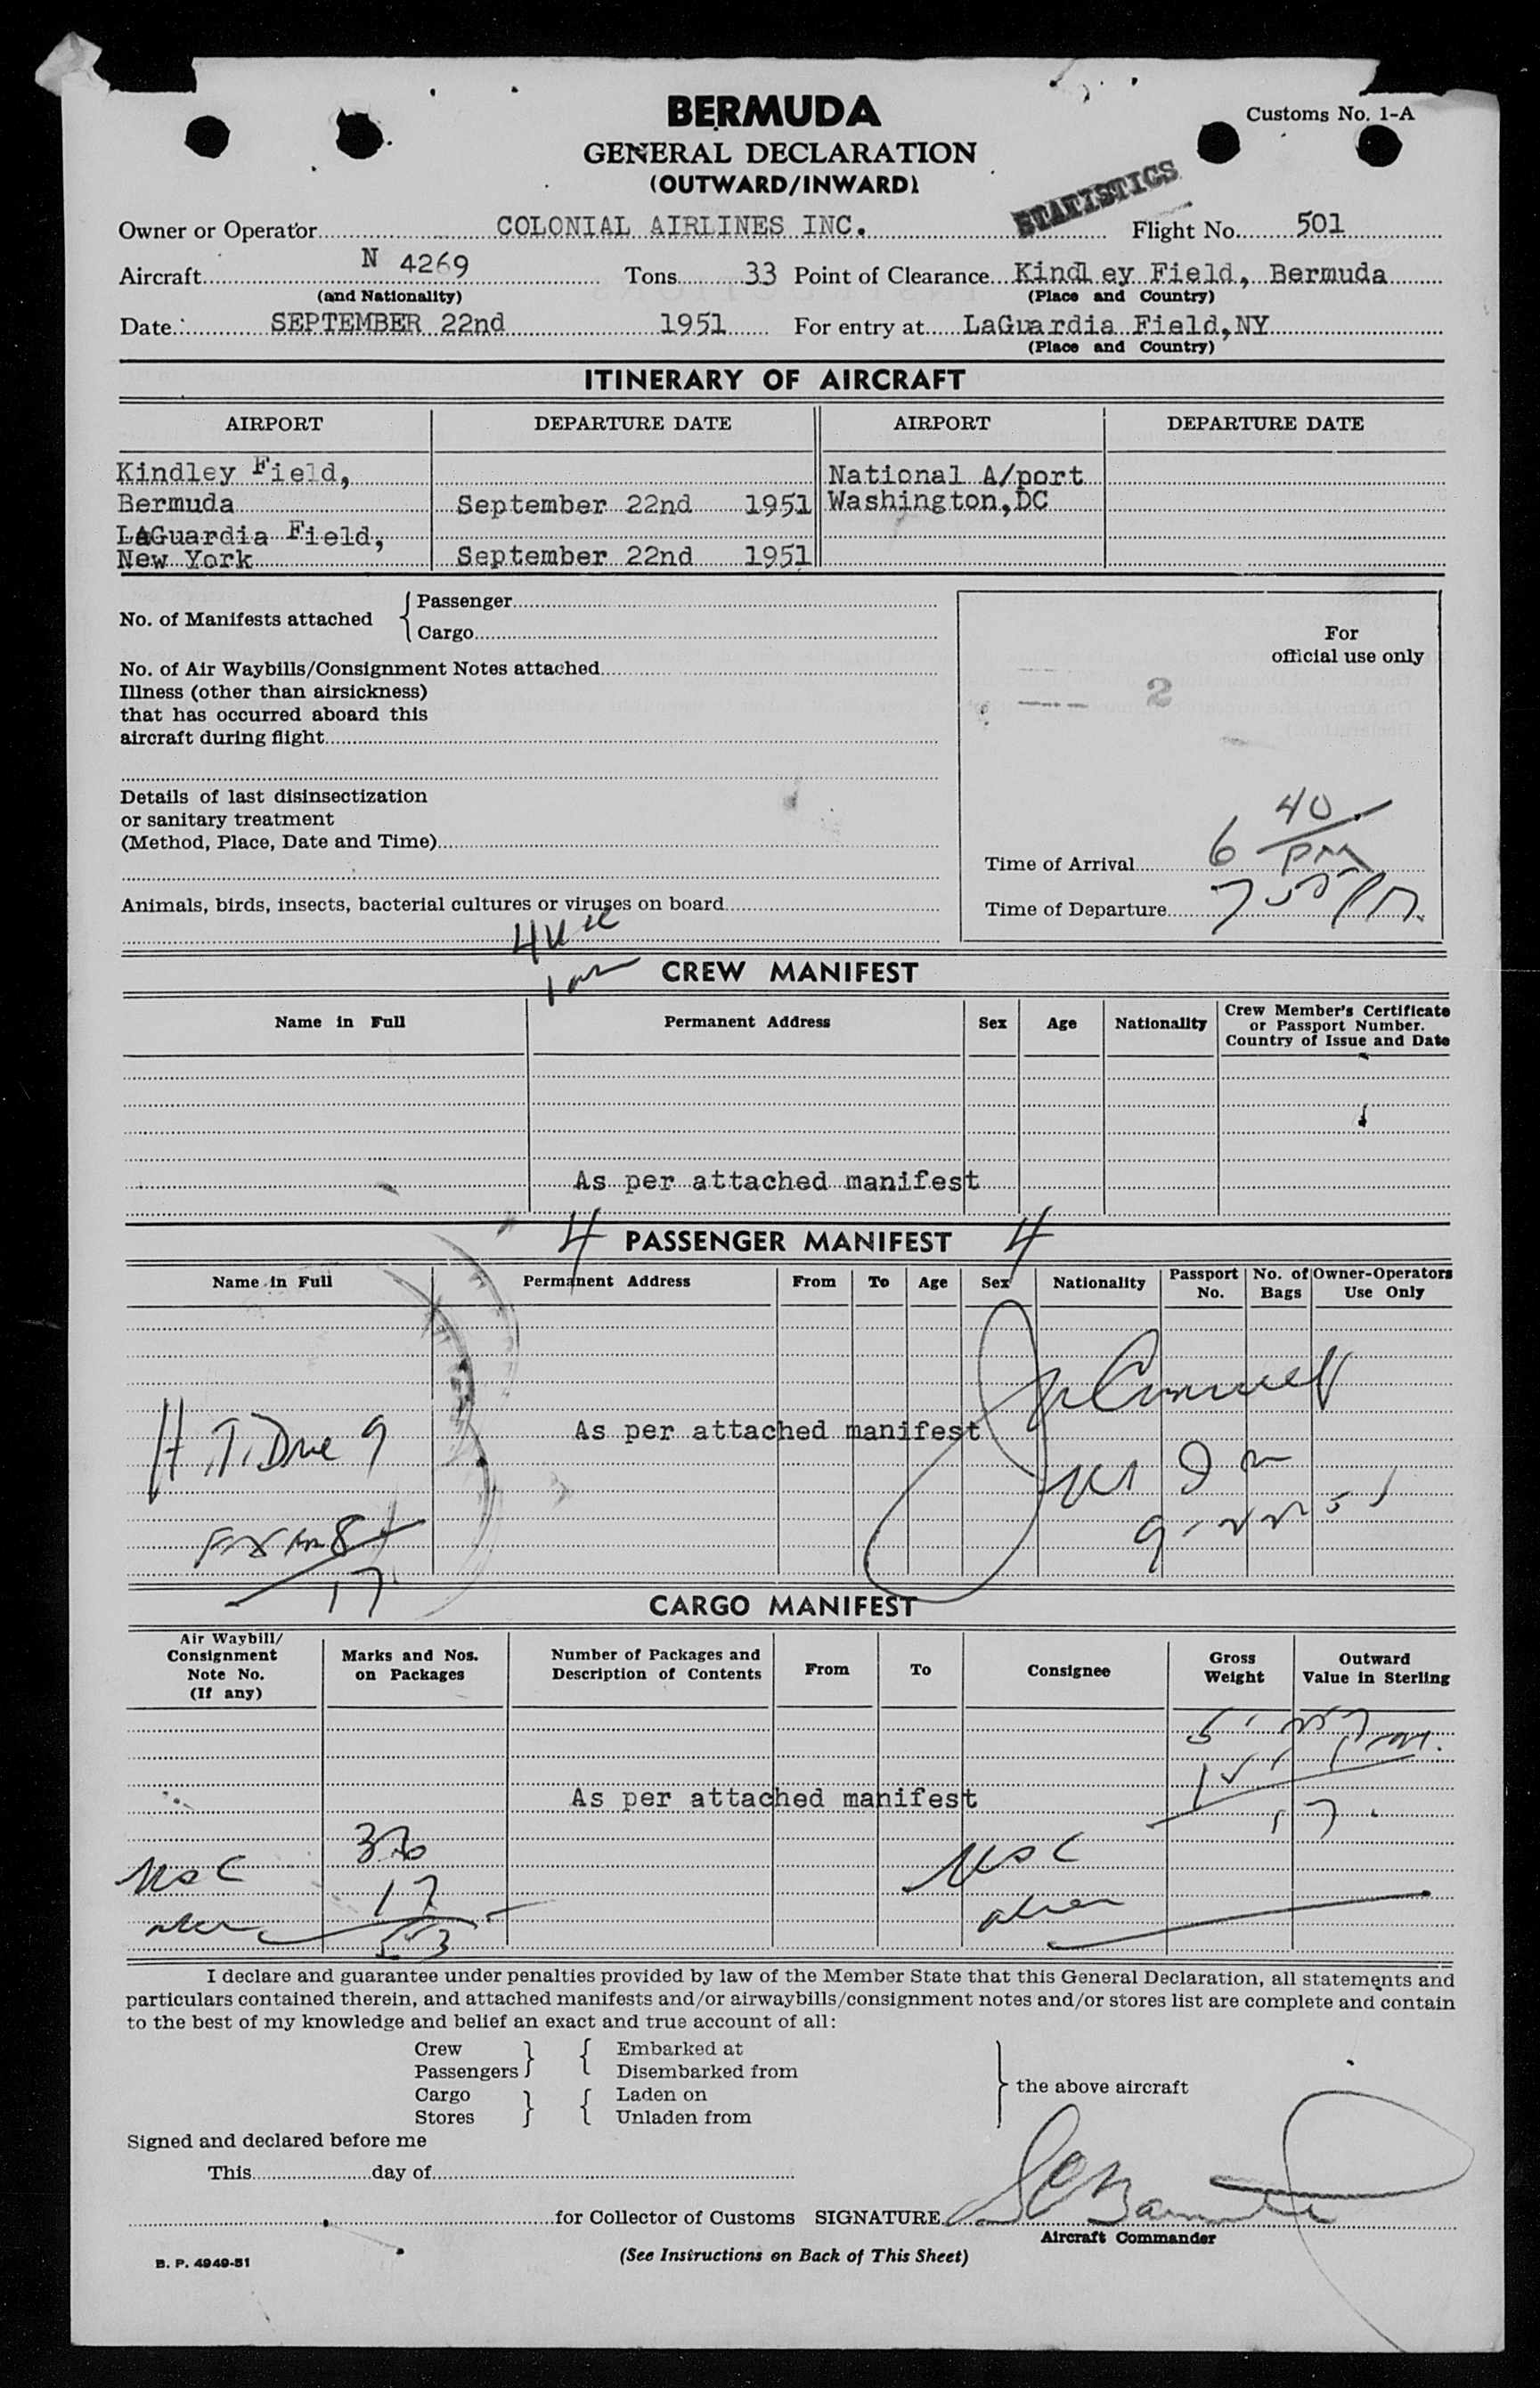 BERMUDA
Customs No. 1-A
GENERAL DECLARATION
(OUTWARD/INWARD)
STATISTICS
Owner or Operator COLONIAL AIRLINES INC. Flight No. 501
Aircraft N 4269 Tons 33 Point of Clearance Kindley Field, Bermuda
(and Nationality) (Place and Country)
Date SEPTEMBER 22nd 1951 For entry at LaGuardia Field,NY
(Place and Country)
ITINERARY OF AIRCRAFT
AIRPORT DEPARTURE DATE AIRPORT DEPARTURE DATE
Kindley Field, National A/port
Bermuda September 22nd 1951 Washington,DC
LAGuardia Field,
New York September 22nd 1951
No. of Manifests attached { Passenger
Cargo
For
official use only
No. of Air Waybills/Consignment Notes attached
Illness (other than airsickness)
that has occurred aboard this
aircraft during flight
2
Details of last disinsectization
or sanitary treatment
(Method, Place, Date and Time)
Time of Arrival 6 40 PM
Animals, birds, insects, bacterial cultures or viruses on board
Time of Departure 7
4
1
CREW MANIFEST
Name in Full Permanent Address Sex Age Nationality Crew Member's Certificate
or Passport Number.
Country of Issue and Date
As per attached manifest
4 PASSENGER MANIFEST 4
Name in Full Permanent Address From To Age Sex Nationality Passport No. No. of Bags Owner-Operators Use Only
As per attached manifest
H.T. Due 9
8
17
CARGO MANIFEST
Air Waybill/
Consignment
Note No.
(If any)
Marks and Nos.
on Packages
Number of Packages and
Description of Contents
From To Consignee
Gross
Weight
Outward
Value in Sterling
As per attached manifest
17.
USC 36 USC
alien 17 alien
53
I declare and guarantee under penalties provided by law of the Member State that this General Declaration, all statements and
particulars contained therein, and attached manifests and/or airwaybills/consignment notes and/or stores list are complete and contain
to the best of my knowledge and belief an exact and true account of all:
Crew } { Embarked at }
Passengers Disembarked from
the above aircraft
Cargo } { Laden on
Stores Unladen from
Signed and declared before me
This day of
for Collector of Customs SIGNATURE
Aircraft Commander
B. P. 4949-51
(See Instructions on Back of This Sheet)